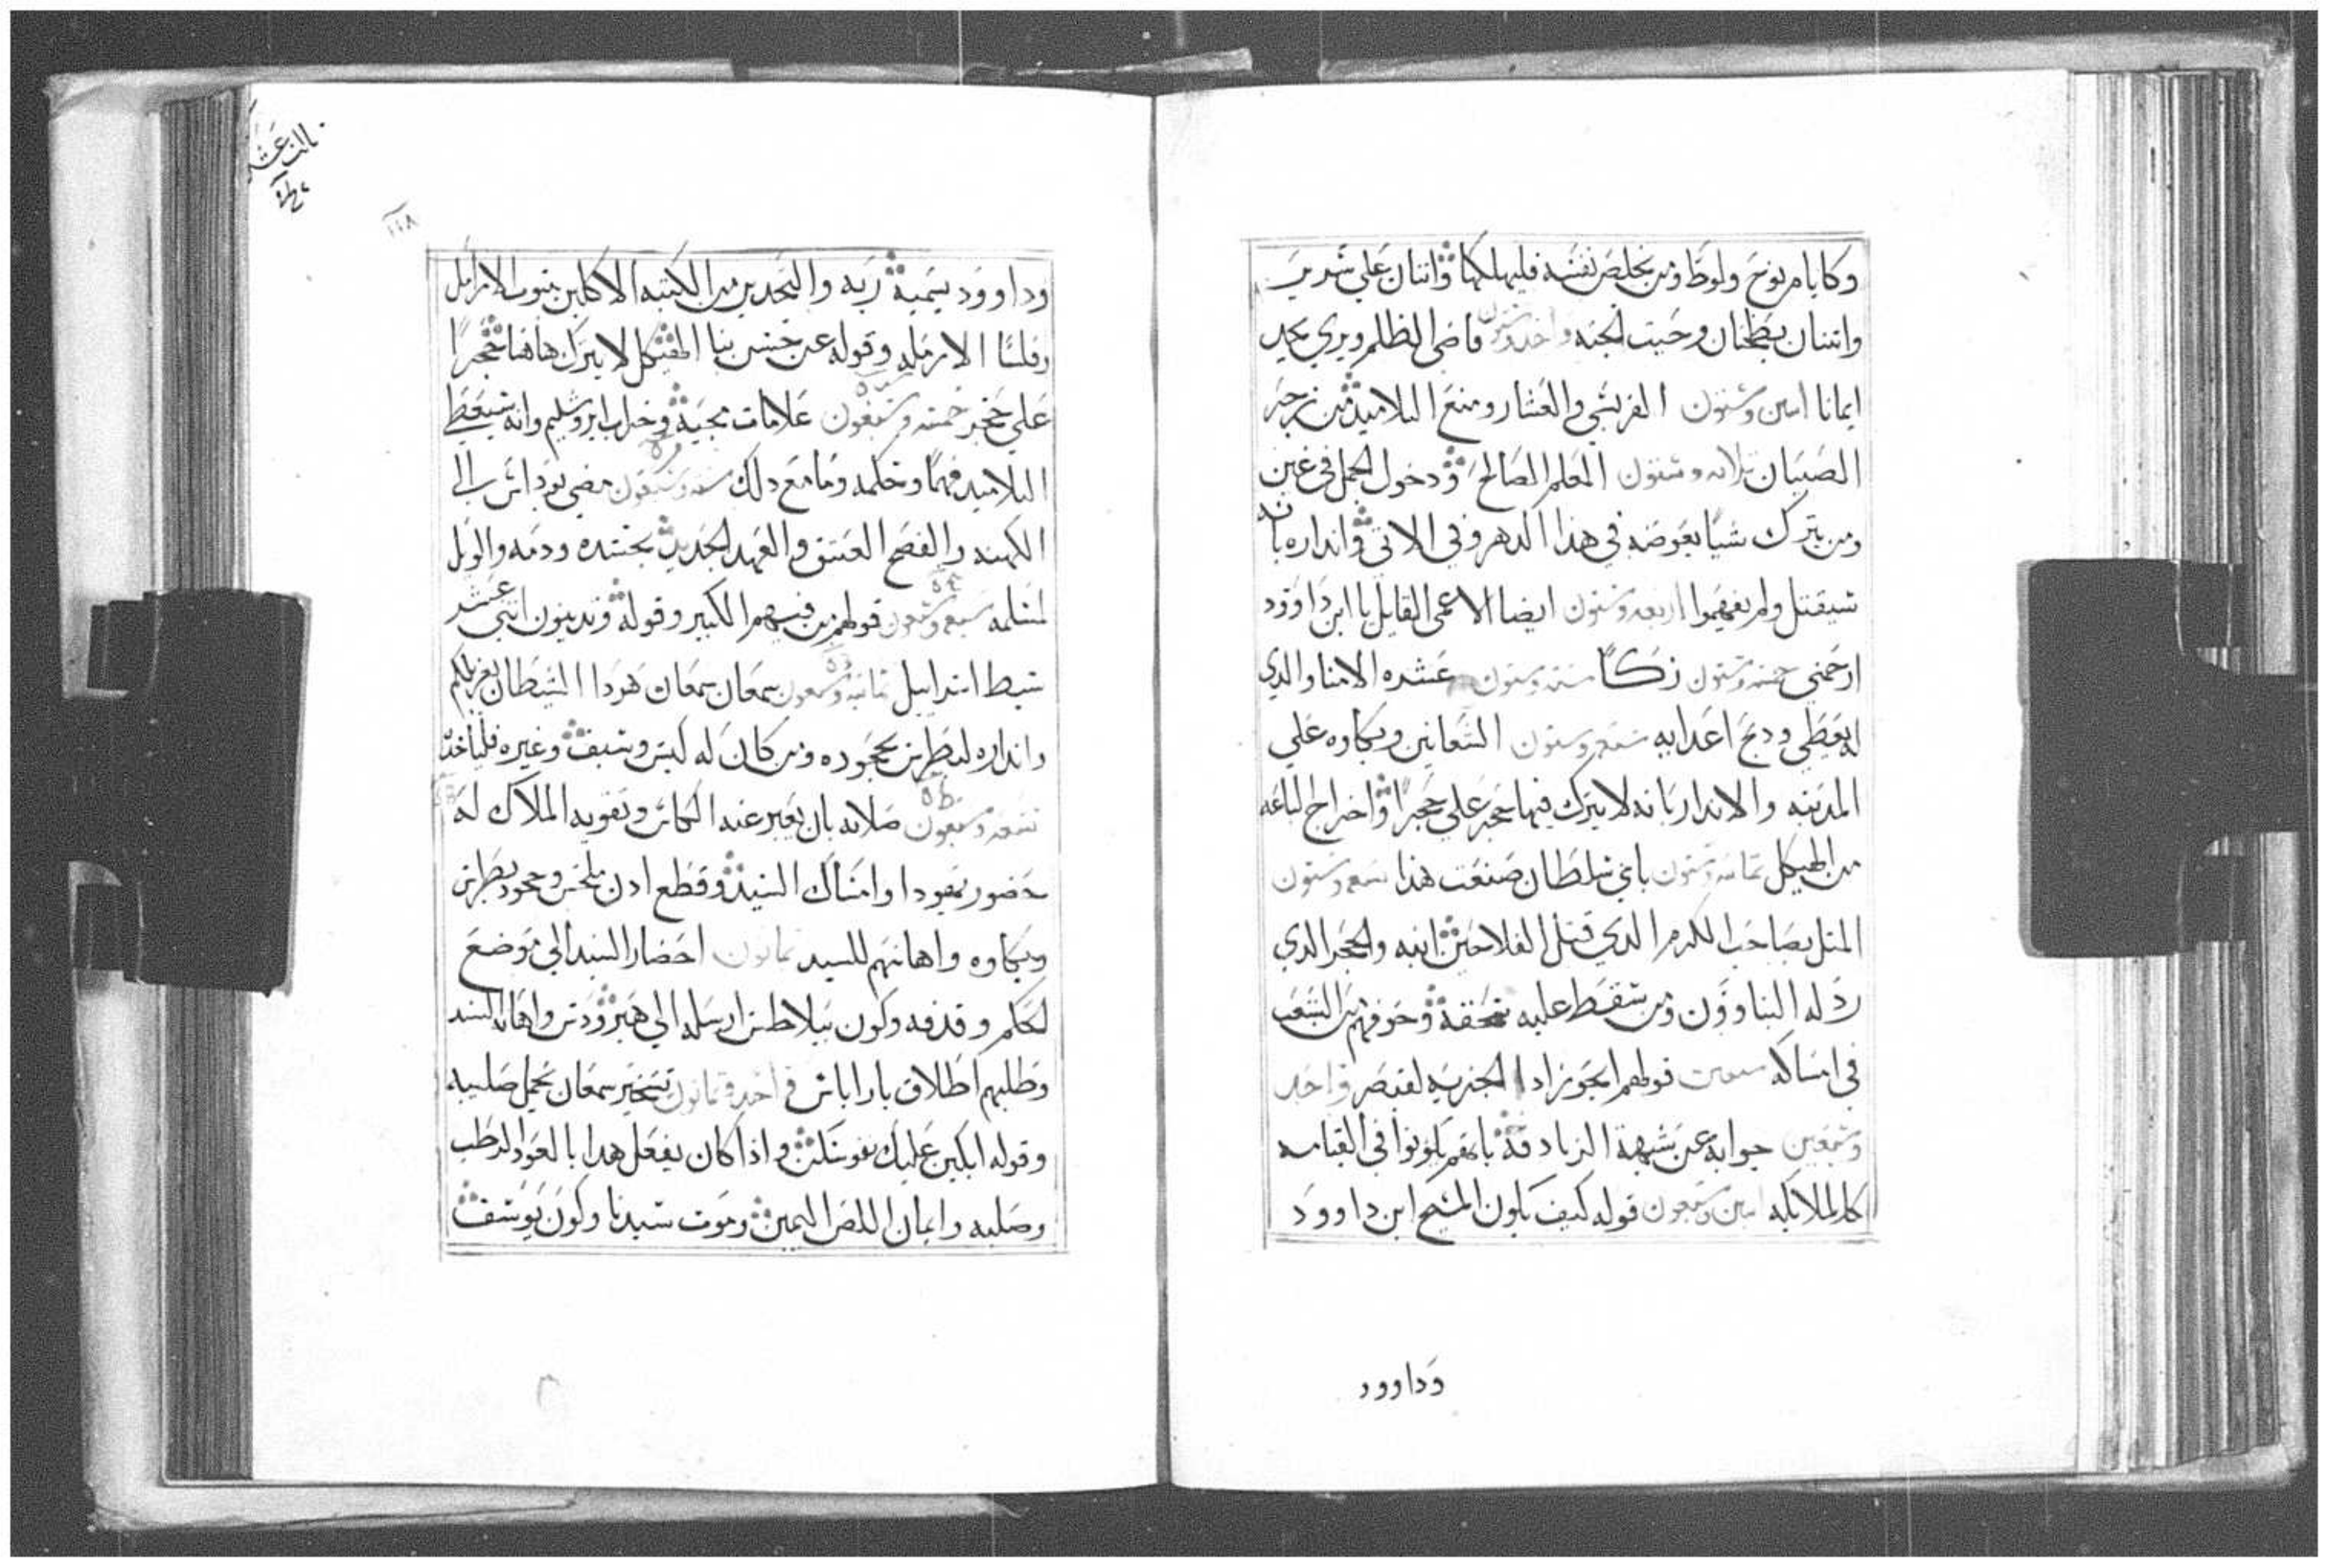 وكايام نوح ولوط ومن يخلص نفسه فليهلكها واتنان علي سرير
واتنتان يطحنان وحيت الجته واحد وستون قاضي الظلم ويري يجد
ايمانا اتنين وستون الفريسي والعشار ومنع التلاميد من زجر
الصبيان تلاته وستون المعلم الصالح ودخول الجمل في عين
ومن يترك شيا يعوضه في هدا الدهر وفي الاتي وانداره بانه
سيقتل ولم يفهموا اربعه وستون ايضا الاعمي القايل يا ابن داوود
ارحمني خمسه وستون زكا سته وستون عشره الامنا والدي
له يعطي ودبح اعدايه سبعه وستون الشعانين وبكاوه علي
المدينه والاندار بانه لا يترك فيها حجر علي حجرا واخراج الباعه
من الهيكل تمانيه وستون باي سلطان صنعت هدا تسعه وستون
المتل بصاحب الكرم الدي قتل الفلاحين ابنه والحجر الدي
ردله البناوون ومن سقط عليه سحقه وخوفهم من الشعب
في امساكه سبعين قولهم ايجوز ادا الجزيه لقيصر واحد
وسبعين جوابه عن شبهة الزنادقه بانهم يكونوا في القيامه
كالملايكه اتنين وسبعون قوله كيف يكون المسيح ابن داوود
وداوود
تالت عشر
١١٨
وداوود يسميه ربه والتحدير من الكتبه الاكلين بيوت الارامل
وفلسا الارمله وقوله عن حسن بنا الهيكل لا يترك هاهنا حجرا
علي حجر خمسه وسبعون علامات مجيه وخراب ايروشليم وانه سيعطي
التلاميد فهما وحكمه وما مع دلك سته وسبعون مضي يوداس الي
الكهنه والفصح العتيق والعهد الجديد بجسده ودمه والويل
لمسلمه سبعه وسبعون قولهم من فيهم الكبير وقوله وتدينون اتني عشر
سبط اسراييل تمانيه وسبعون سمعان سمعان هودا الشيطان يغربلكم
وانداره لبطرس بجحوده ومن كان له كيس وسيف وغيره فلياخد
تسعه وسبعون صلاته بان يعبر عنه الكاس وتقويه الملاك له
حضور يهودا وامساك السيد وقطع ادن ملخس وجحود بطرس
وبكاوه واهانتهم للسيد تمانون احضار السيد الي موضع
لحكم وقدفه وكون بيلاطس ارسله الي هيرودس واهانه السيد
وطلبهم اطلاق باراباس واحد وتمانون تسخير سمعان بحمل صليبه
وقوله ابكين عليك نفوسكن واداكان يفعل هدا بالعود الرطب
وصلبه وايمان اللص اليمين وموت سيدنا وكون يوسف